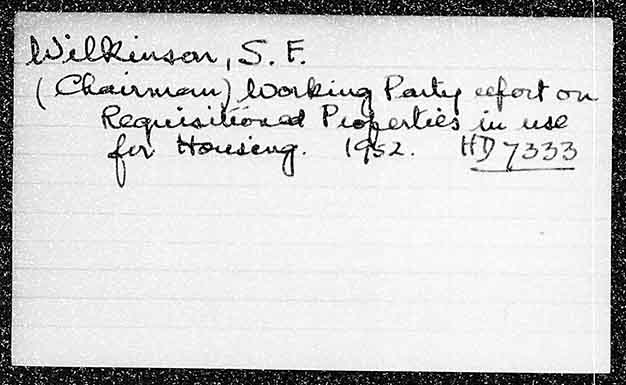 Wilkinson, S. F.
(Chairman) Working Party report on
Requisitioned Properties in use
for Housing. 1952. HD 7333